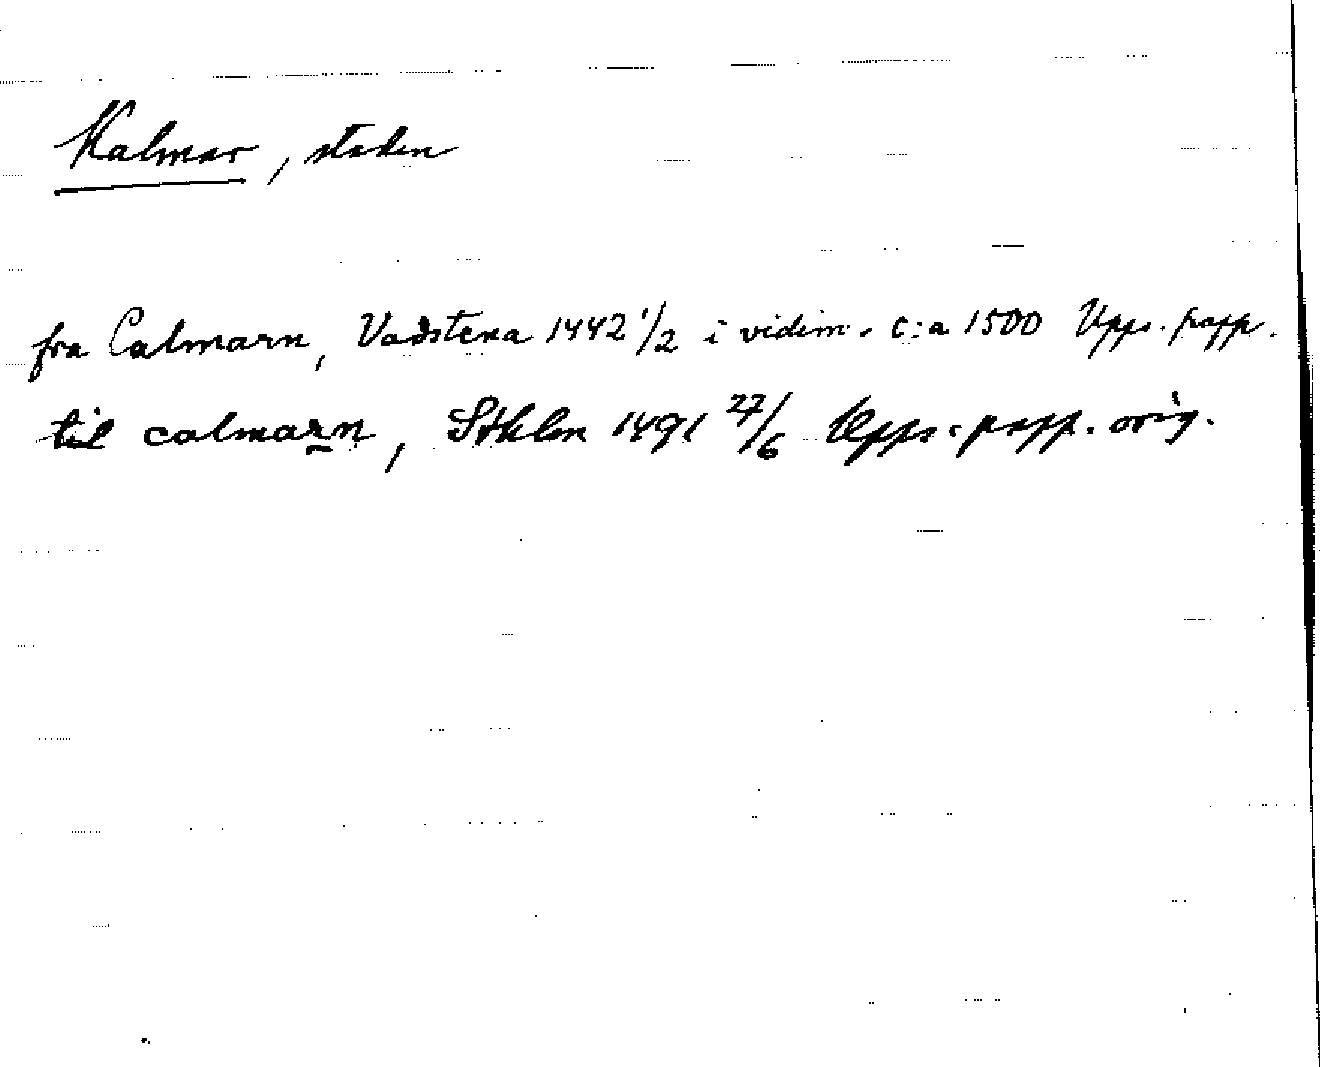 Kalmar, staden
fra Calmarn, Vadstena 1442 1/2 i vidim. c:a 1500 Upps. papp.
til calmarn, Sthlm 1491 27/6 Upps. papp. orig.